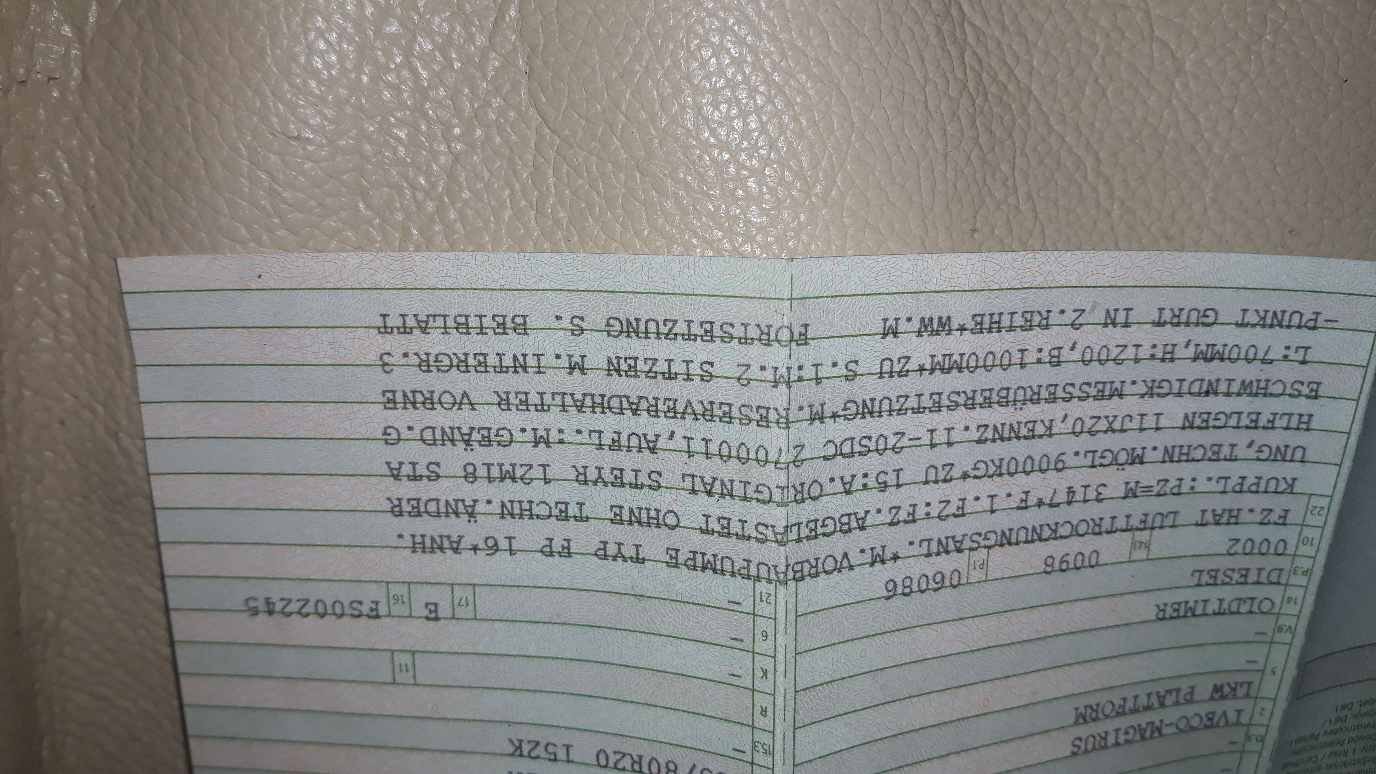 /80R20 152K
D.3 –
2 IVECO-MAGIRUS
5 LKW PLATTFORM
–
V.9 –
14 OLDTIMER
P.3 DIESEL
10 0002 0098 P.1 06086
15.3 –
R
K – 11
6 –
21 – 17 E 16 FS002245
22 FZ.HAT LUFTTROCKNUNGSANL.*M.VORBAUPUMPE TYP FP 16*ANH.
KUPPL.:PZ=M 3147*F.1.FZ:FZ.ABGELASTET OHNE TECHN.ÄNDER
UNG,TECHN.MÖGL.9000KG*ZU 15:A.ORIGINAL STEYR 12M18 STA
HLFELGEN 11JX20,KENNZ.11-20SDC 2700011,AUFL.:M.GEÄND.G
ESCHWINDIGK.MESSERÜBERSETZUNG*M.RESERVERADHALTER VORNE
L:700MM,H:1200,B:1000MM*ZU S.1:M.2 SITZEN M.INTERGR.3
-PUNKT GURT IN 2.REIHE*WW.M FORTSETZUNG S. BEIBLATT